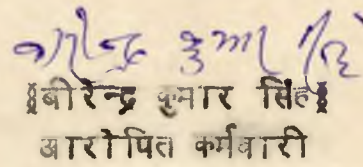 वीरेन्द्र कुमार सिंह
॥बीरेन्द्र कुमार सिंह॥
आरोपित कर्मचारी